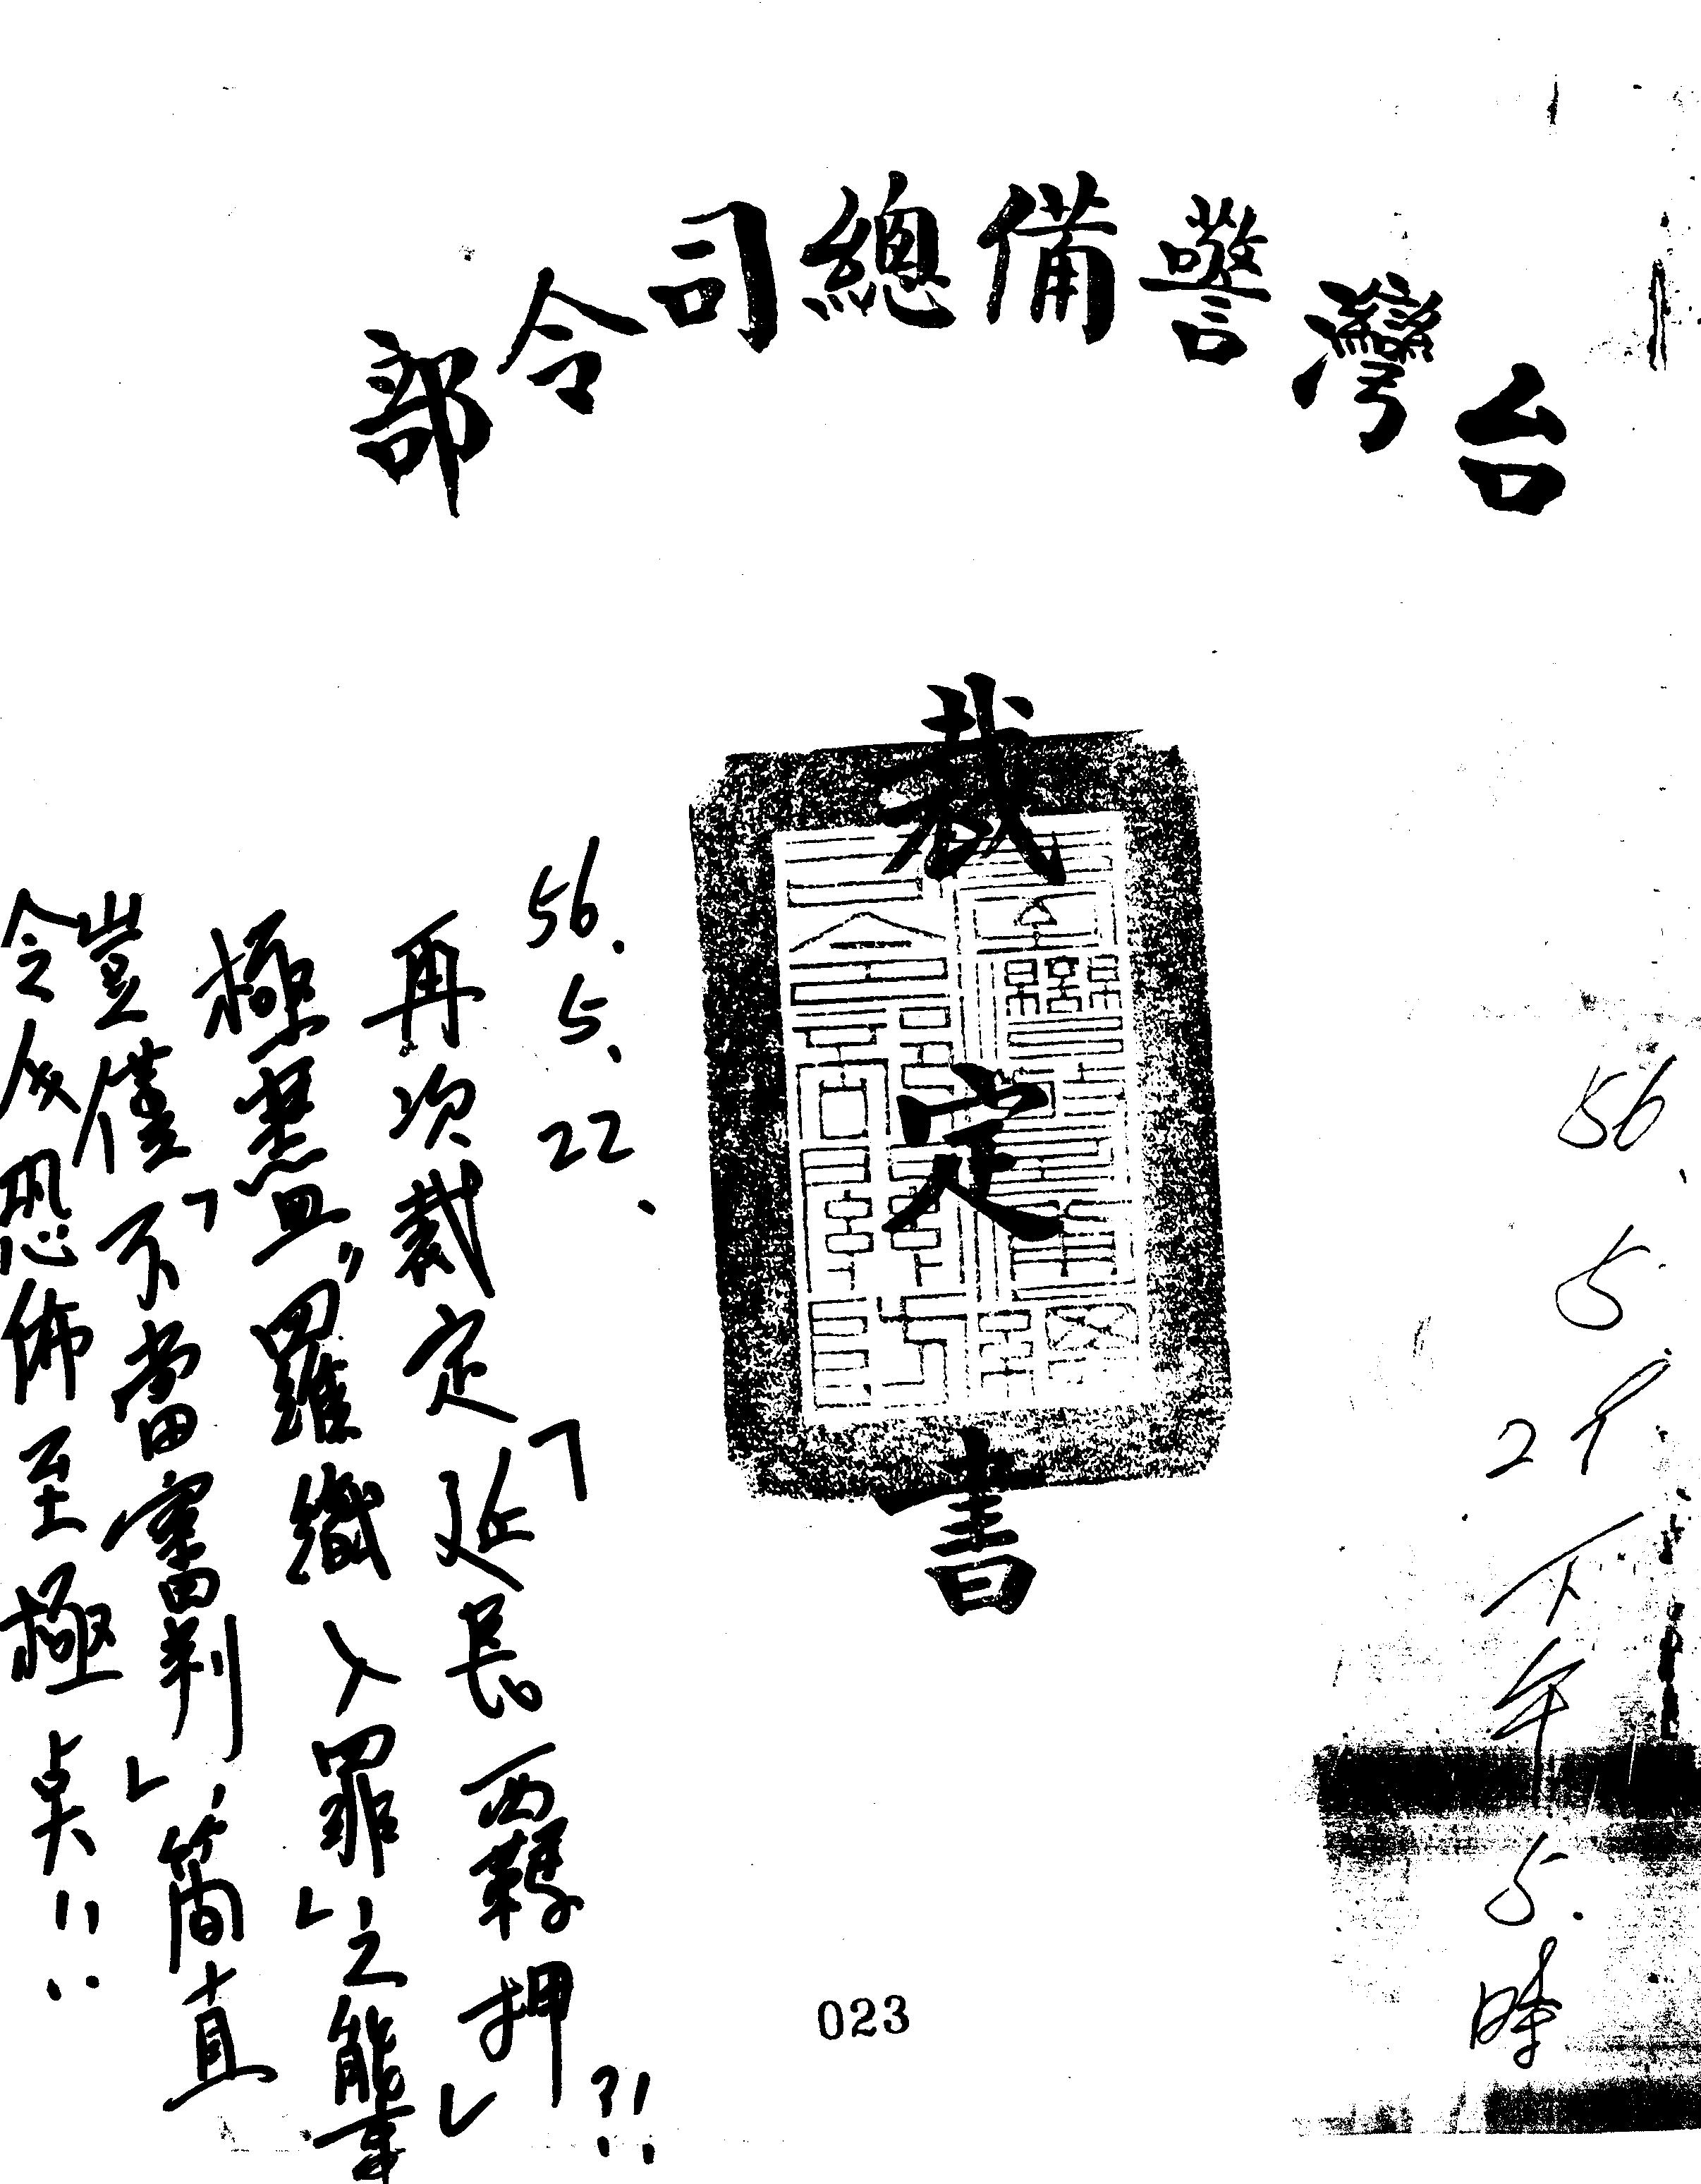 台灣警備總司令部
裁定書
56.5.29.下午5.時
56.5.22.
再次裁定「延長羈押」?!
極盡"羅織入罪」之能事
豈僅「不當審判」,簡直
令人恐佈至極矣!!
023